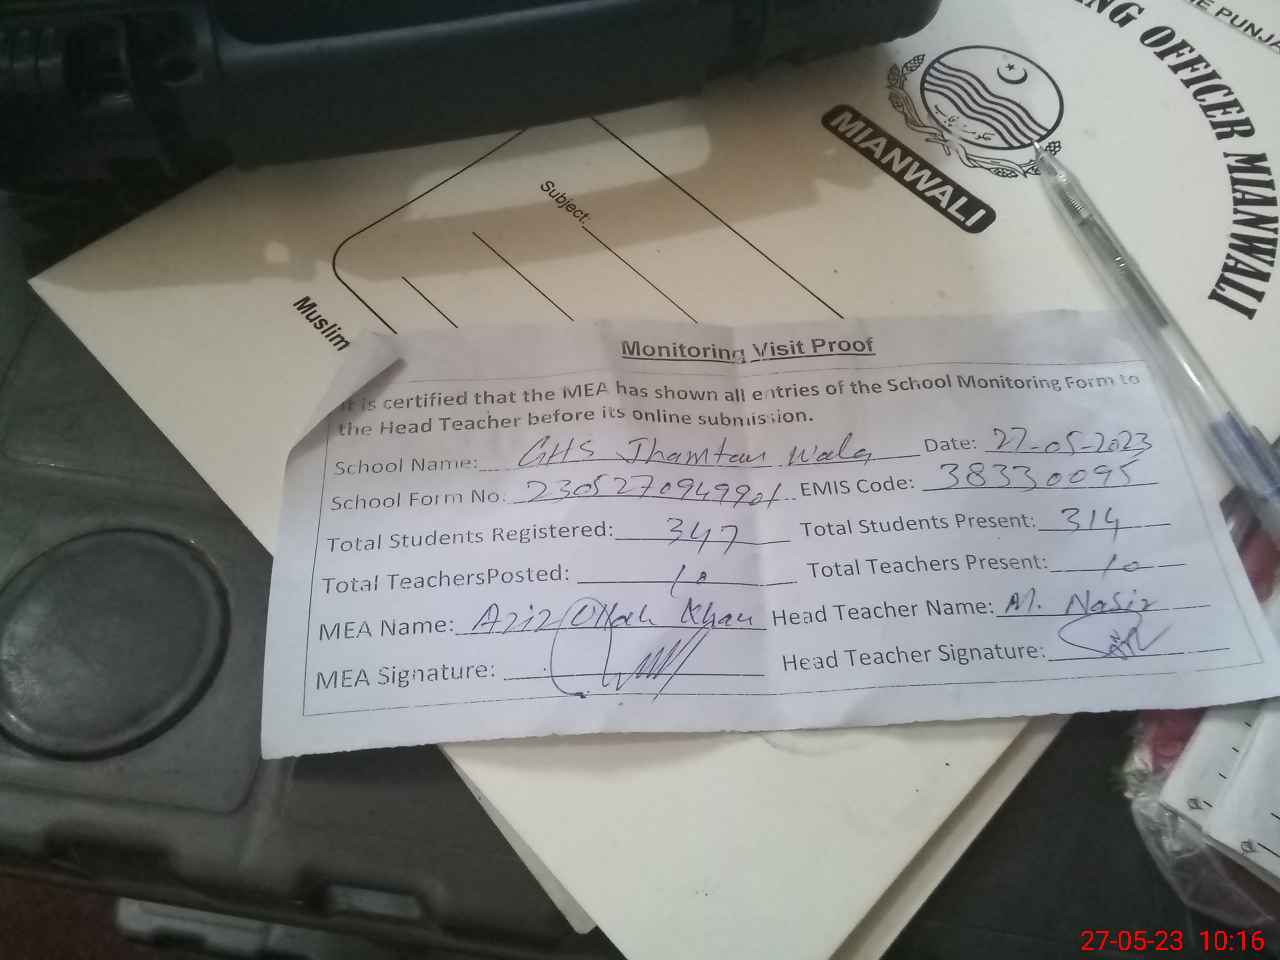 THE PUNJA
NG OFFICER MIANWALI
MIANWALI
Subject:
Muslim
Monitoring Visit Proof
It is certified that the MEA has shown all entries of the School Monitoring Form to
the Head Teacher before its online submission.
School Name: GHS Jhamtan Wala Date: 27-05-2023
School Form No: 2305270949901 EMIS Code: 38330095
Total Students Registered: 347 Total Students Present: 314
Total TeachersPosted: 10 Total Teachers Present: 10
MEA Name: Aziz Ullah Khan Head Teacher Name: M. Nasir
MEA Signature: Head Teacher Signature:
27-05-23 10:16